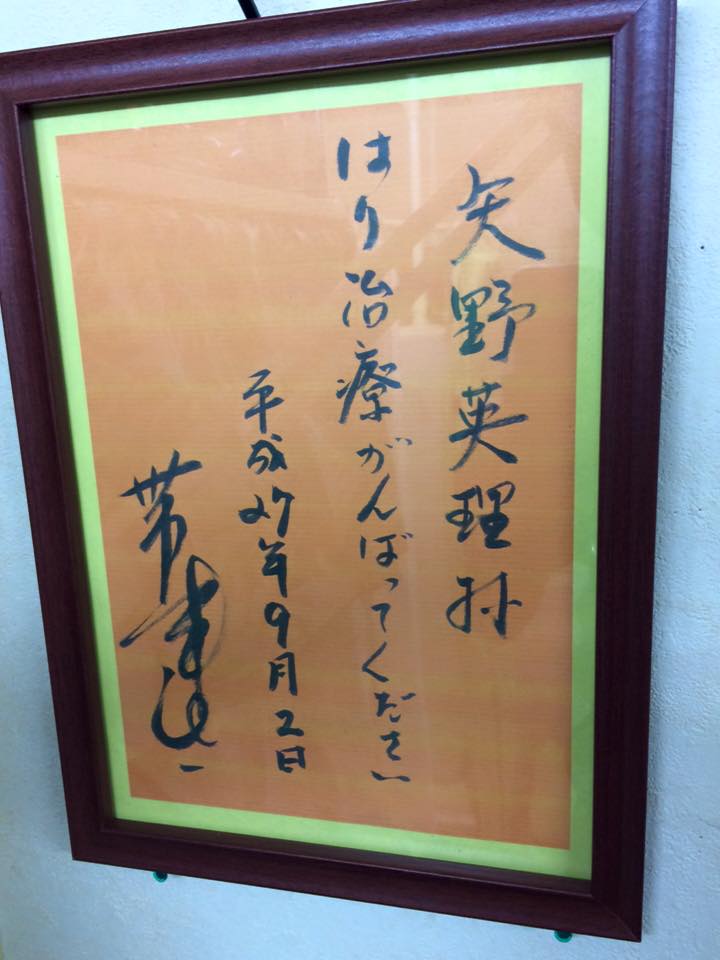 矢野英理様
はり治療がんばってください
平成27年9月2日
帯津良一